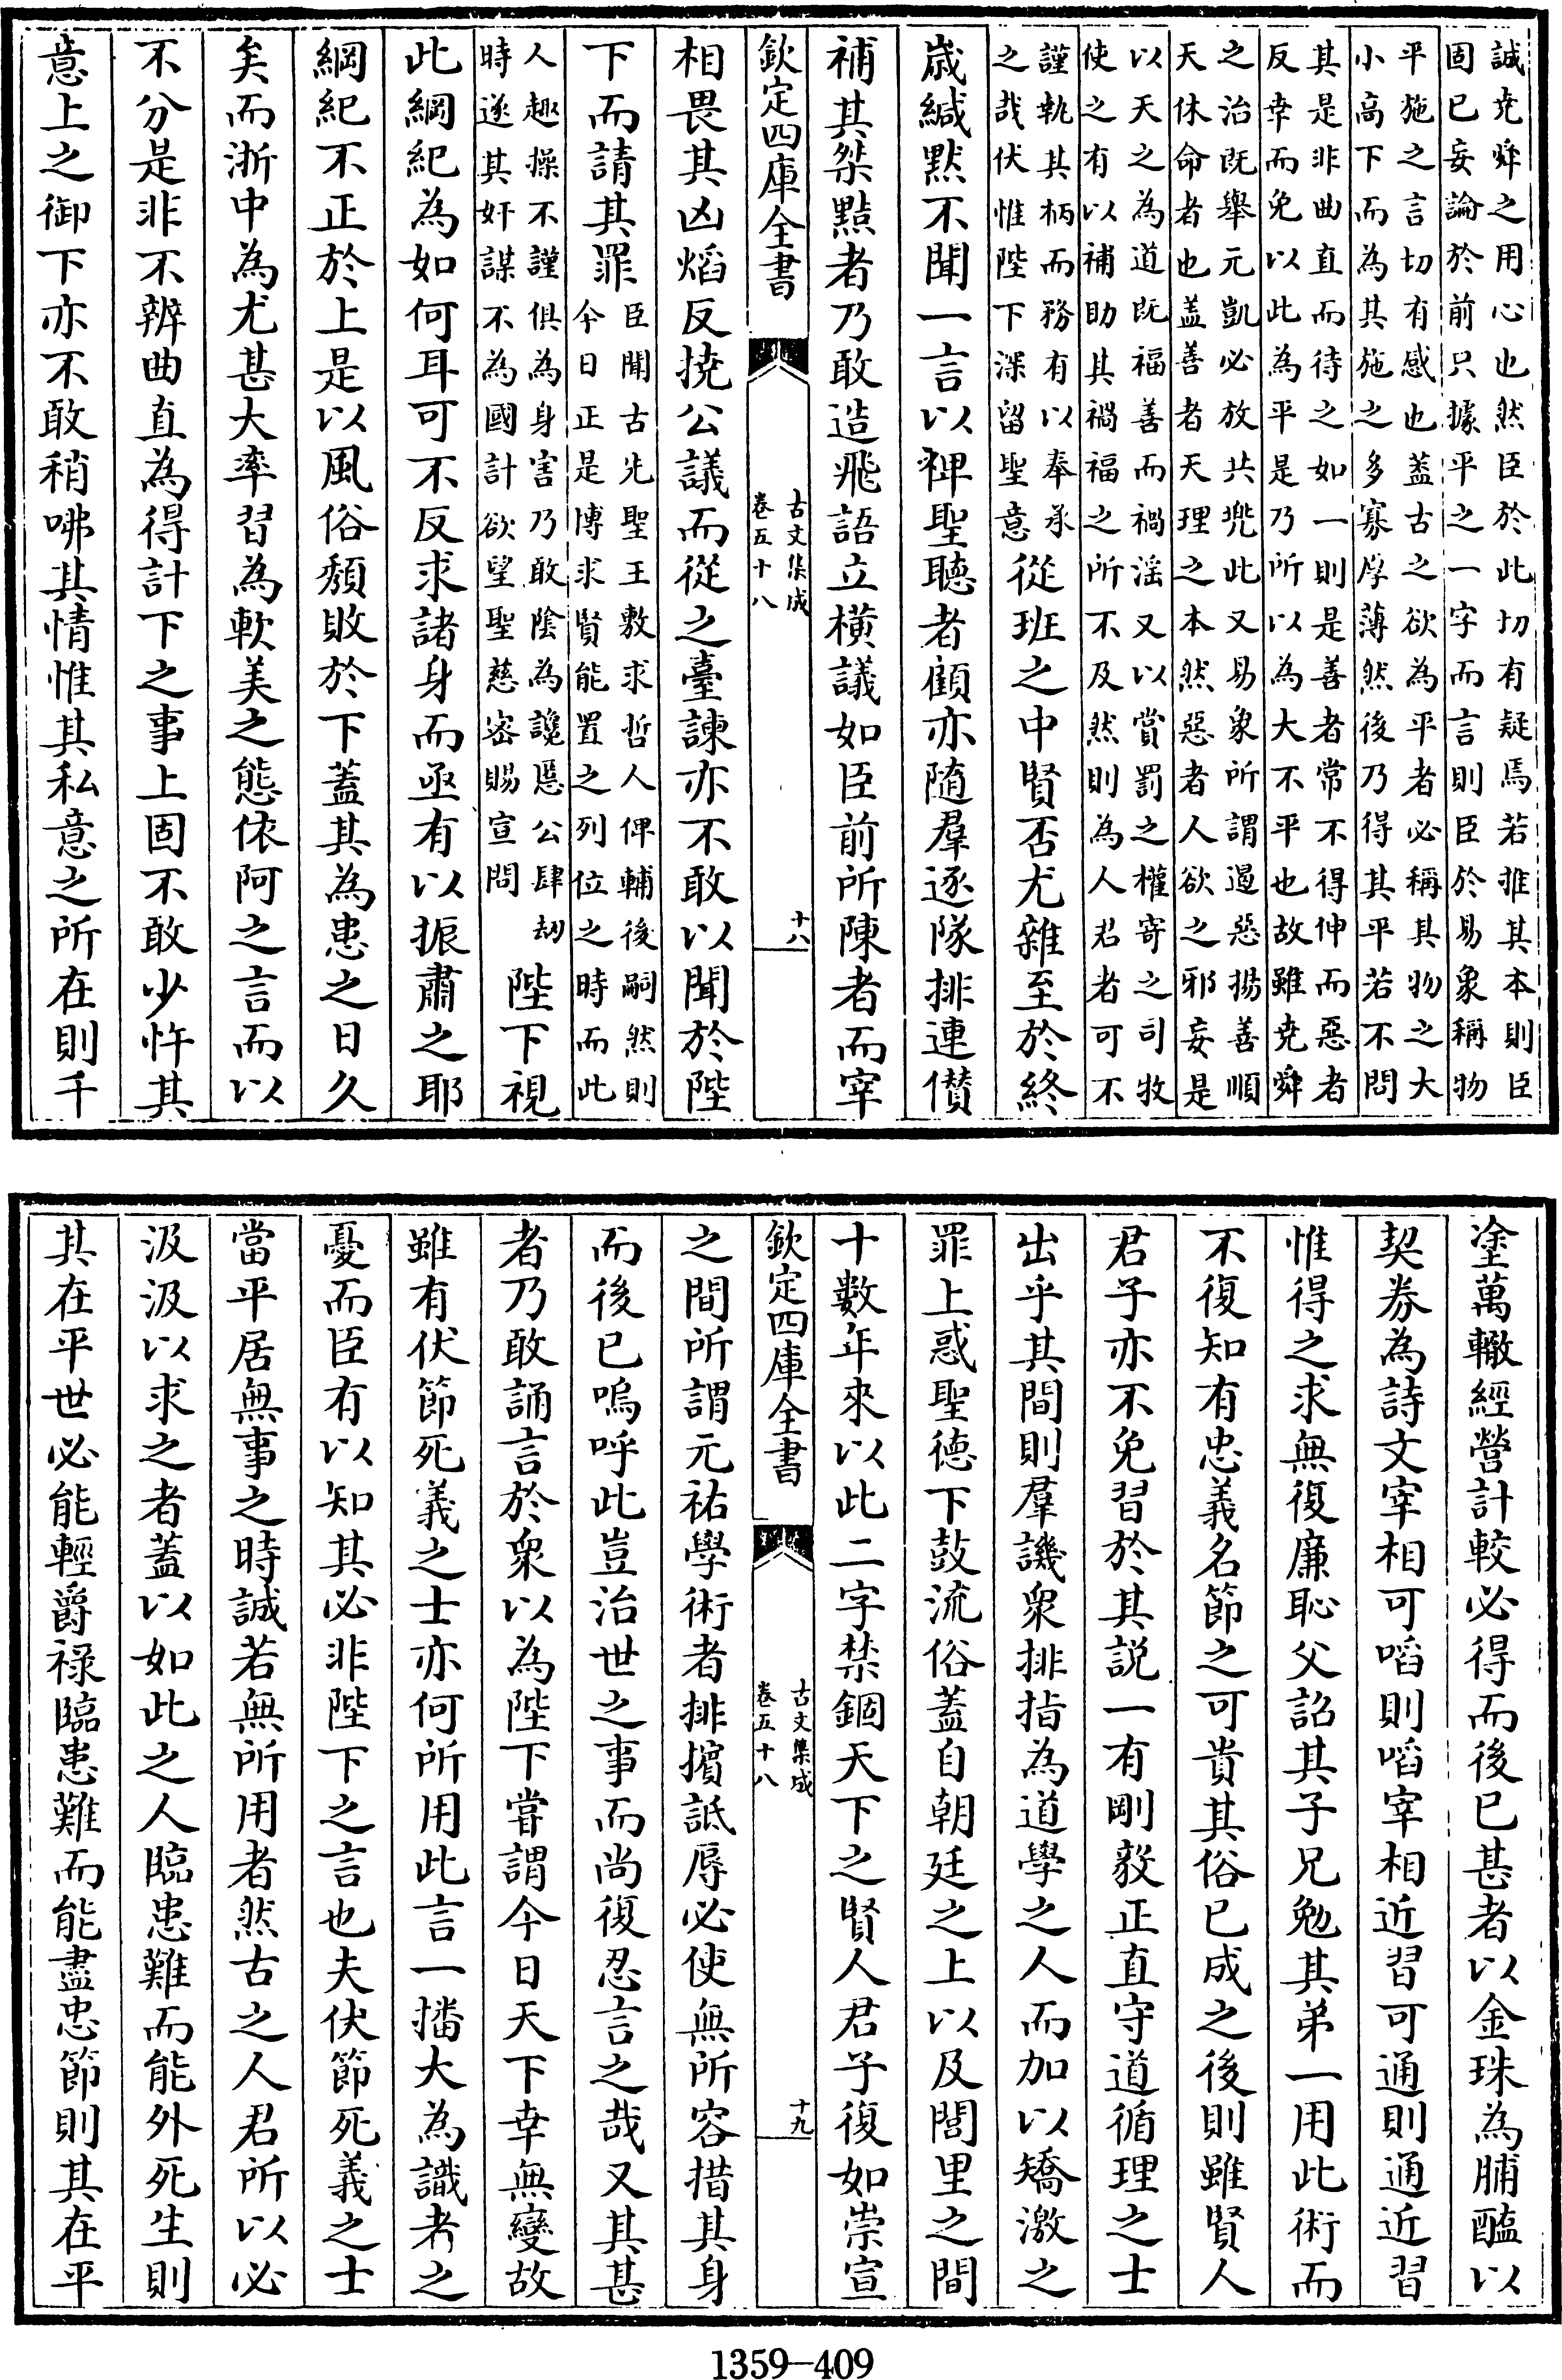 誠堯舜之用心也然臣於此切有疑焉若推其本則臣
固已妄論於前只據平之一字而言則臣於易象稱物
平施之言切有感也蓋古之欲為平者必稱其物之大
小高下而為其施之多寡厚薄然後乃得其平若不問
其是非曲直而待之如一則是善者常不得伸而惡者
反幸而免以此為平是乃所以為大不平也故雖堯舜
之治既舉元凱必放共兜此又易象所謂遏惡揚善順
天休命者也蓋善者天理之本然惡者人欲之邪妄是
以天之為道既福善而禍淫又以賞罰之權寄之司牧
使之有以補助其禍福之所不及然則為人君者可不
謹執其柄而務有以奉承
之哉伏惟陛下深留聖意
從班之中賢否尤雜至於終
歲緘默不聞一言以裨聖聽者顧亦隨羣逐隊排連儹
補其桀黠者乃敢造飛語立橫議如臣前所陳者而宰
欽定四庫全書
古文集成
卷五十八
十八
相畏其凶焰反撓公議而從之臺諫亦不敢以聞於陛
下而請其罪
臣聞古先聖王敷求哲人俾輔後嗣然則
今日正是博求賢能置之列位之時而此
人趣操不謹俱為身害乃敢陰為讒慝公肆劫
時遂其奸謀不為國計欲望聖慈密賜宣問
陛下視
此綱紀為如何耳可不反求諸身而亟有以振肅之耶
綱紀不正於上是以風俗頹敗於下蓋其為患之日久
矣而浙中為尤甚大率習為軟美之態依阿之言而以
不分是非不辨曲直為得計下之事上固不敢少忤其
意上之御下亦不敢稍咈其情惟其私意之所在則千
塗萬轍經營計較必得而後已甚者以金珠為脯醢以
契券為詩文宰相可啗則啗宰相近習可通則通近習
惟得之求無復廉恥父詔其子兄勉其弟一用此術而
不復知有忠義名節之可貴其俗已成之後則雖賢人
君子亦不免習於其說一有剛毅正直守道循理之士
出乎其間則羣譏衆排指為道學之人而加以矯激之
罪上惑聖德下鼓流俗蓋自朝廷之上以及閭里之間
十數年來以此二字禁錮天下之賢人君子復如崇宣
欽定四庫全書
古文集成
卷五十八
十九
之間所謂元祐學術者排擯詆辱必使無所容措其身
而後已嗚呼此豈治世之事而尚復忍言之哉又其甚
者乃敢誦言於衆以為陛下嘗謂今日天下幸無變故
雖有伏節死義之士亦何所用此言一播大為識者之
憂而臣有以知其必非陛下之言也夫伏節死義之士
當平居無事之時誠若無所用者然古之人君所以必
汲汲以求之者蓋以如此之人臨患難而能外死生則
其在平世必能輕爵祿臨患難而能盡忠節則其在平
1359-409